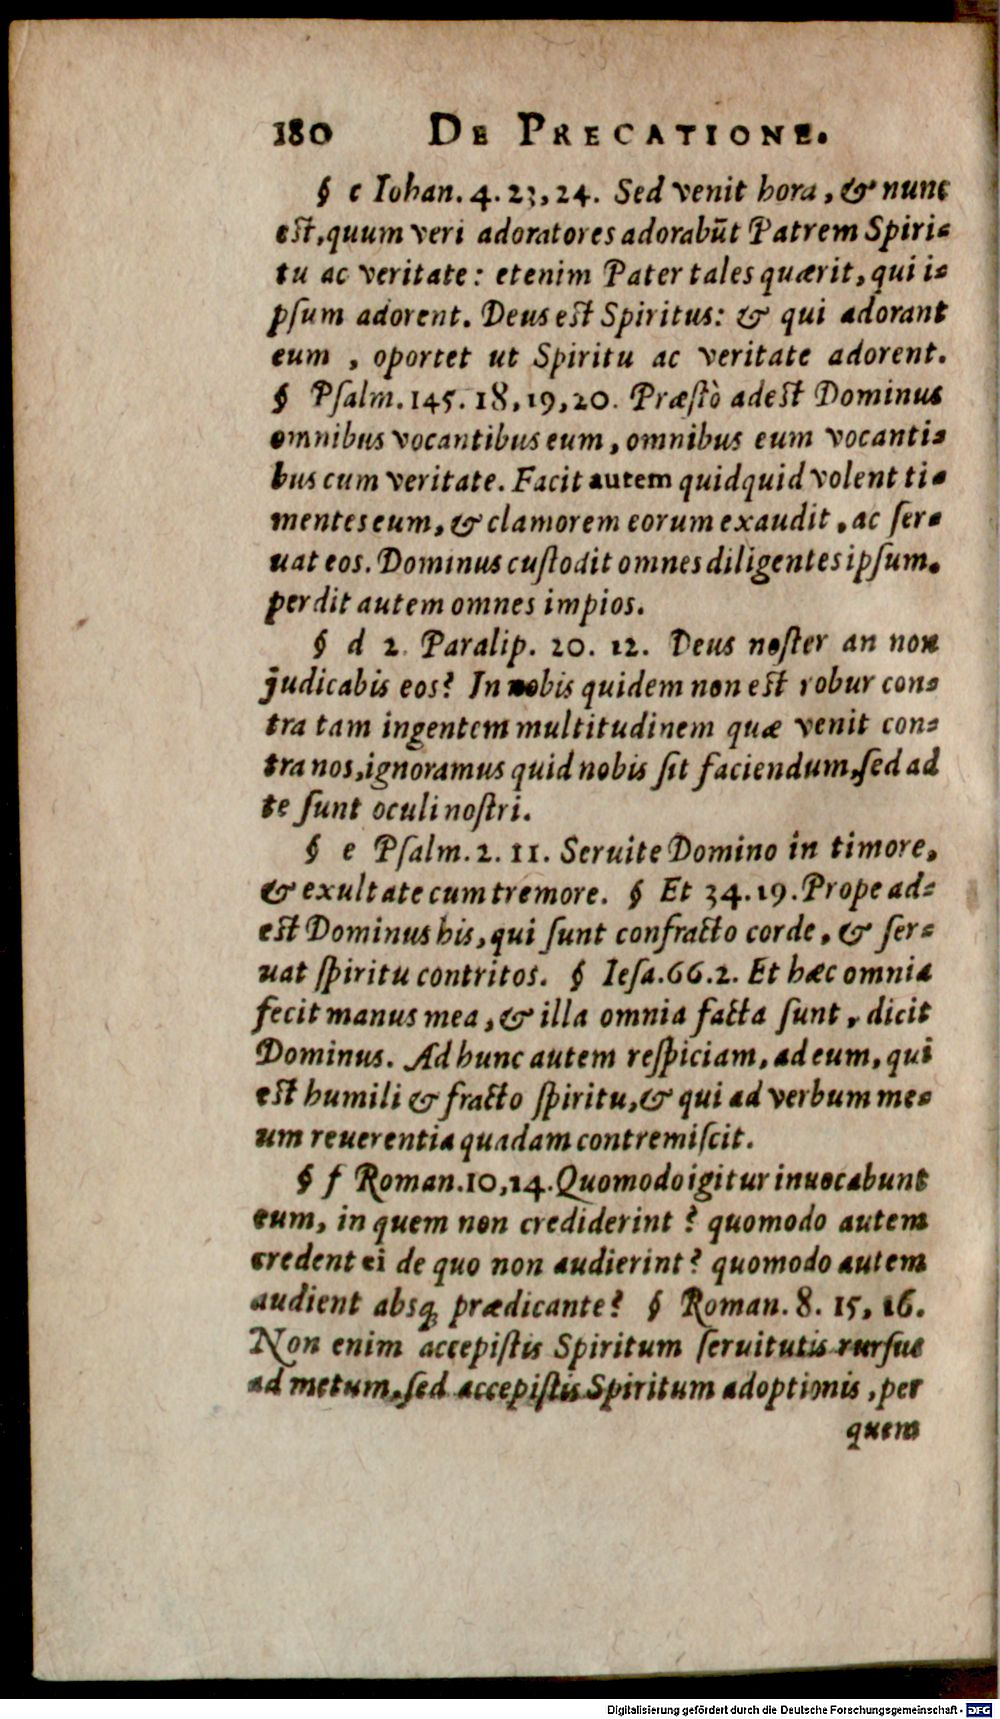 180 DE PRECATIONE.
§ c Iohan. 4. 23, 24. Sed venit hora, & nunc
est, quum veri adoratores adorabūt Patrem Spiri-
tu ac veritate: etenim Pater tales quærit, qui i-
psum adorent. Deus est Spiritus: & qui adorant
eum , oportet ut Spiritu ac veritate adorent.
§ Psalm. 145. 18, 19, 20. Præstò adest Dominus
omnibus vocantibus eum, omnibus eum vocanti-
bus cum veritate. Facit autem quidquid volent ti-
mentes eum, & clamorem eorum exaudit, ac ser-
uat eos. Dominus custodit omnes diligentes ipsum.
perdit autem omnes impios.
§ d 2. Paralip. 20. 12. Deus noster an non
judicabis eos? In nobis quidem non est robur con-
tra tam ingentem multitudinem quæ venit con-
tra nos, ignoramus quid nobis sit faciendum, sed ad
te sunt oculi nostri.
§ e Psalm. 2. 11. Seruite Domino in timore,
& exultate cum tremore. § Et 34. 19. Prope ad-
est Dominus his, qui sunt confracto corde, & ser-
uat spiritu contritos. § Iesa. 66. 2. Et hæc omnia
fecit manus mea, & illa omnia facta sunt, dicit
Dominus. Ad hunc autem respiciam, ad eum, qui
est humili & fracto spiritu, & qui ad verbum me-
um reuerentia quadam contremiscit.
§ f Roman. 10, 14. Quomodo igitur inuocabunt
eum, in quem non crediderint ? quomodo autem
credent ei de quo non audierint? quomodo autem
audient absq; prædicante? § Roman. 8. 15, 16.
Non enim accepistis Spiritum seruitutis rursus
ad metum, sed accepistis Spiritum adoptionis, per
quem
Digitalisierung gefördert durch die Deutsche Forschungsgemeinschaft - DFG